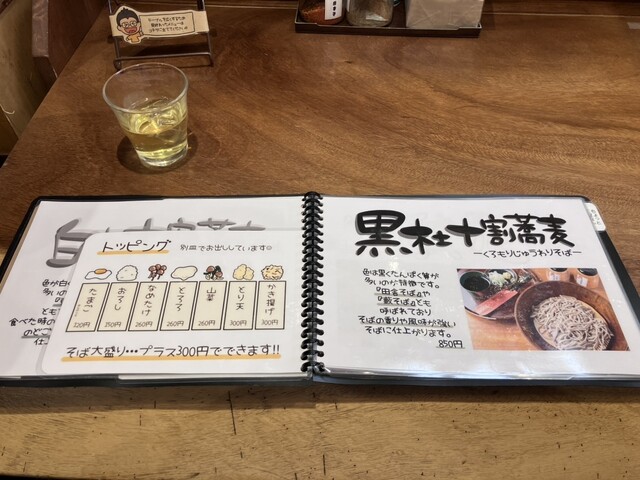 トッピング
別皿でお出ししています♡
たまご
120円
おろし
250円
なめたけ
260円
とろろ
260円
山菜
260円
とり天
300円
かき揚げ
300円
そば大盛り…プラス300円でできます!!
黒杜十割蕎麦
ーくろもりじゅうわりそばー
色は黒くたんぱく質が
多いのが特徴です。
『田舎そば』や
『藪そば』とも
呼ばれており
そばの香りや風味が強い
そばに仕上がります。
850円
色が白
多いの
とも
食べた時の
のどご
仕上